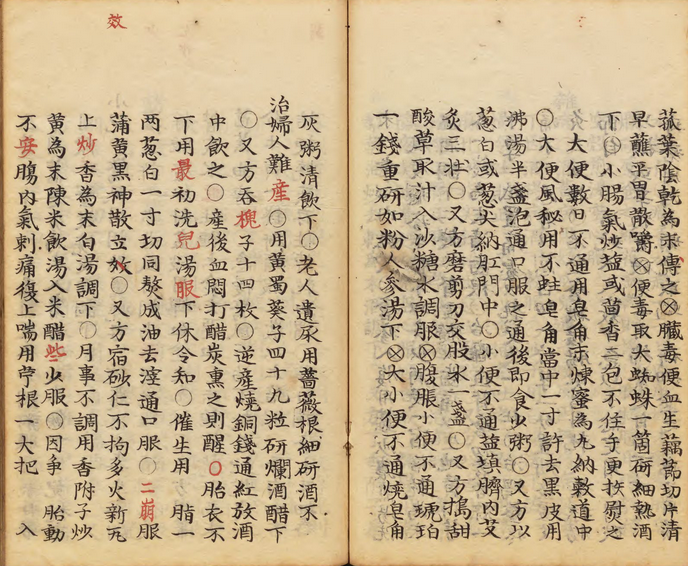 菰葉陰乾為末傅之⊗臟毒便血生藕節切片清
早蘸平胃散嚼⊗便毒取大蜘蛛一箇研細熱酒
下〇小腸氣炒鹽或茴香二包不住手更換熨之
大便數日不通用皂角末煉蜜為丸納穀道中
〇大便風秘用不蛀皂角當中一寸許去黑皮用
沸湯半盞泡通口服之通後即食少粥〇又方以
葱白或葱尖納肛門中〇小便不通鹽填臍內艾
灸三壯〇又方磨剪刀交股水一盞〇又方搗甜
酸草取汁入沙糖水調服⊗腹脹小便不通琥珀
一錢重研如粉人參湯下⊗大小便不通燒皂角
灰粥清飲下〇老人遺尿用薔薇根細研酒不
治婦人難產〇用黃蜀葵子四十九粒研爛酒醋下
〇又方吞槐子十四枚〇逆產燒銅錢通紅放酒
中飲之〇產後血悶打醋炭熏之則醒〇胎衣不
下用最初洗兒湯服下休令知〇催生用 脂一
两葱白一寸切同熬成油去滓通口服〇二崩服
蒲黃黑神散立效〇又方宿砂仁不拘多火新瓦
上炒香為末白湯調下〇月事不調用香附子炒
黃為末陳米飲湯入米醋些少服〇因爭 胎動
不安膓內氣刺痛復上喘用苧根一大把 入
效